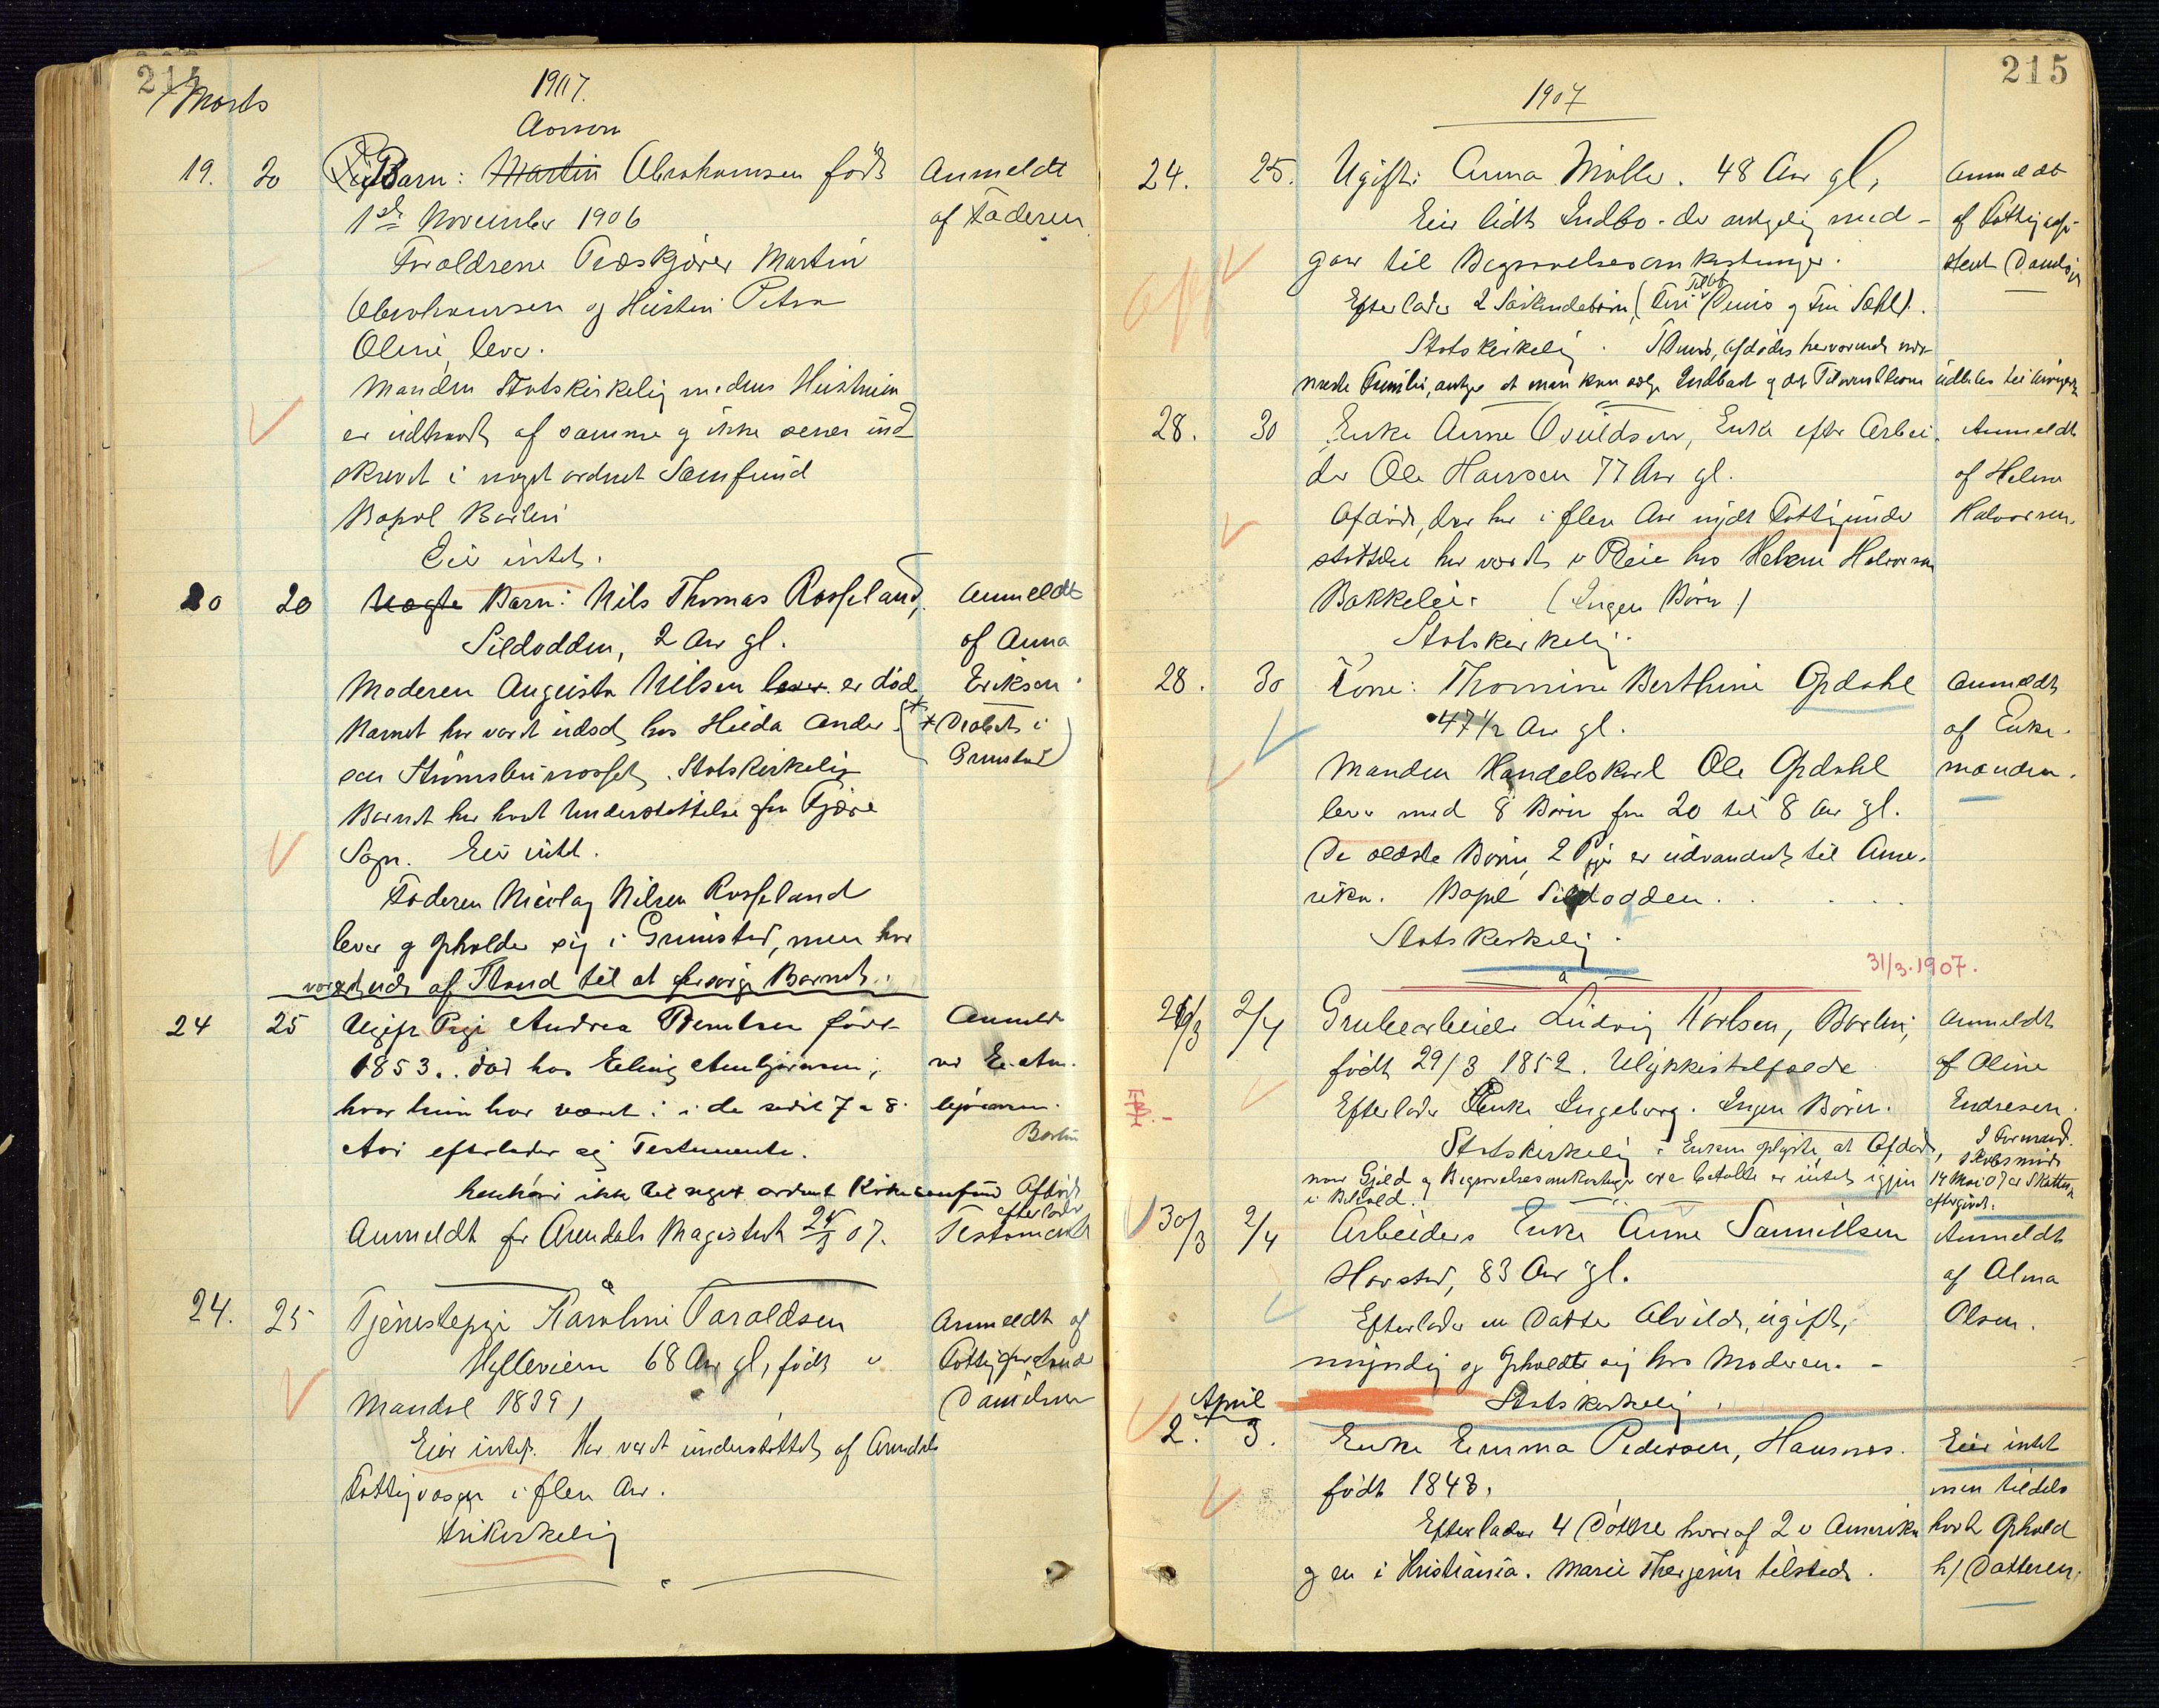 214
Marts
1907.
Aanon
19. 20 Barn: Martin Abrahamsen født
Anmeldt
1ste November 1906
af Faderen
Forældrene Martin
Abrahamsen og Hustru Petra
Oline, lever.
Manden Statskirkelig medens Hustruen
er udtraadt af samme og ikke senere ind
skrevet i noget ordnet Samfund
Bopæl Barbu
Eier intet.
20 20 Uægte Barn: Nils Thomas Rosseland,
Anmeldt
Sildodden, 2 Aar gl.
af Anna
Moderen Augusta Nilsen lever er død,
Eriksen
Barnet har været udsat hos Hulda Ander-
* Drabet i
sen Strømsbu . Statskirkelig
Grimstad
Barnet har havt Understøttelse fra Fjære
Sogn. Eier intet.
Faderen Nicolay Nilsen Rosseland
lever og opholder sig i Grimstad, men har
været ude af Stand til at forsørge Barnet.
24 25 Ugift Pige Andrea Berntsen født
Anmeldt
1853. død hos Elling Ambjørnsen,
ved E. Am-
hvor hun har været i de sidste 7 a 8
bjørnsen.
Barbu
Aar efterlader sig Testamente.
henhører ikke til noget ordnet Kirkesamfund
Afdøde
efterlader
Anmeldt for Arendals Magistrat 25/3 07.
Testamente
24. 25 Tjenestepige Karoline Taraldsen
Anmeldt af
68 Aar gl, født i
Fattigforstander
Mandal 1839,
Danielsen
Eier intet. Har været understøttet af Arendals
Fattigvæsen i flere Aar.
Frikirkelig
215
1907
24. 25. Ugift: Anna Møller. 48 Aar gl,
Anmeldt
Eier lidt Indbo. der antagelig med-
af Fattigassi-
gaar til Begravelsesomkostninger.
stent Daniels
Efterlader 2 Søskendebørn,
Statskirkelig.
næste Familie, antager at man kan sælge Indboet og det
28. 30 Enke Anne Osuldsen, Enke efter Arbei-
Anmeldt
der Ole Hansen 77 Aar gl.
af Helene
Afdøde, der har i flere Aar nydt Fattigunder
Halvorsen.
støttelse har været i Pleie hos Helene Halvorsen
Bakkelie. (Ingen Børn)
Statskirkelig.
28. 30 Kone: Thomine Berthine Opdahl
Anmeldt
47 1/2 Aar gl.
af Enke-
Manden Handelskarl Ole Opdahl
manden.
lever med 8 Børn fra 20 til 8 Aar gl.
De ældste Børn, 2 Piger er udvandret til Ame-
rika. Bopæl Sildodden.
Statskirkelig.
31/3.1907.
29/3 2/4 Grubearbeider Ludvig Karlsen, Barbu,
Anmeldt
født 29/3 1852. Ulykkestilfælde
af Oline
Efterlader Enke Ingeborg. Ingen Børn.
Endresen.
Statskirkelig. Enken oplyste, at Afdøde,
naar Gjæld og Begravelsesomkostninger ere betalte er intet igjen
14 Mai 07 er Skatten
i Behold.
eftergivet.
30/3 2/4 Arbeiders Enke Anne Samuelsen
Anmeldt
Harstad, 83 Aar gl.
af Alma
Efterlader en Datter Alvilde, ugift,
Olsen.
myndig og opholdte sig hos Moderen.
Statskirkelig.
April
2. 3. Enke Emma Pedersen,
Eier intet
født 1848.
men tildels
Efterlader 4 Døttre hvoraf 2 i Amerika
havt Ophold
og en i Kristiania. Marie Thergersen tilstede.
h/ Datteren.